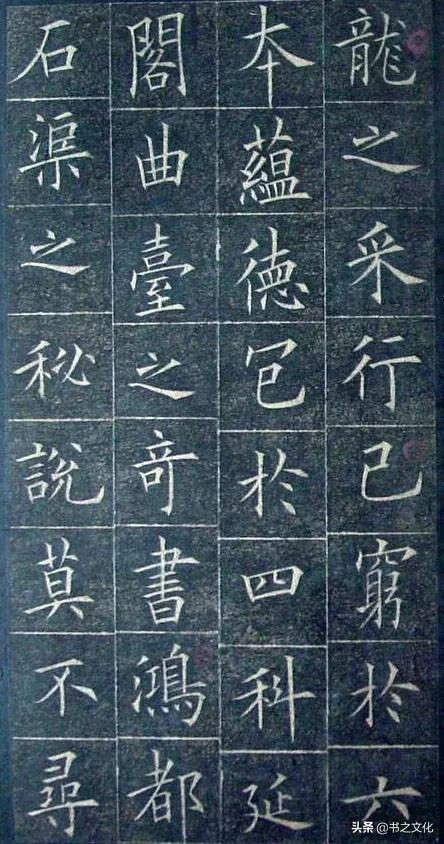 龍之采行已窮於六
本蘊德包於四科延
閣曲臺之奇書鴻都
石渠之秘說莫不尋
头条 @书之文化